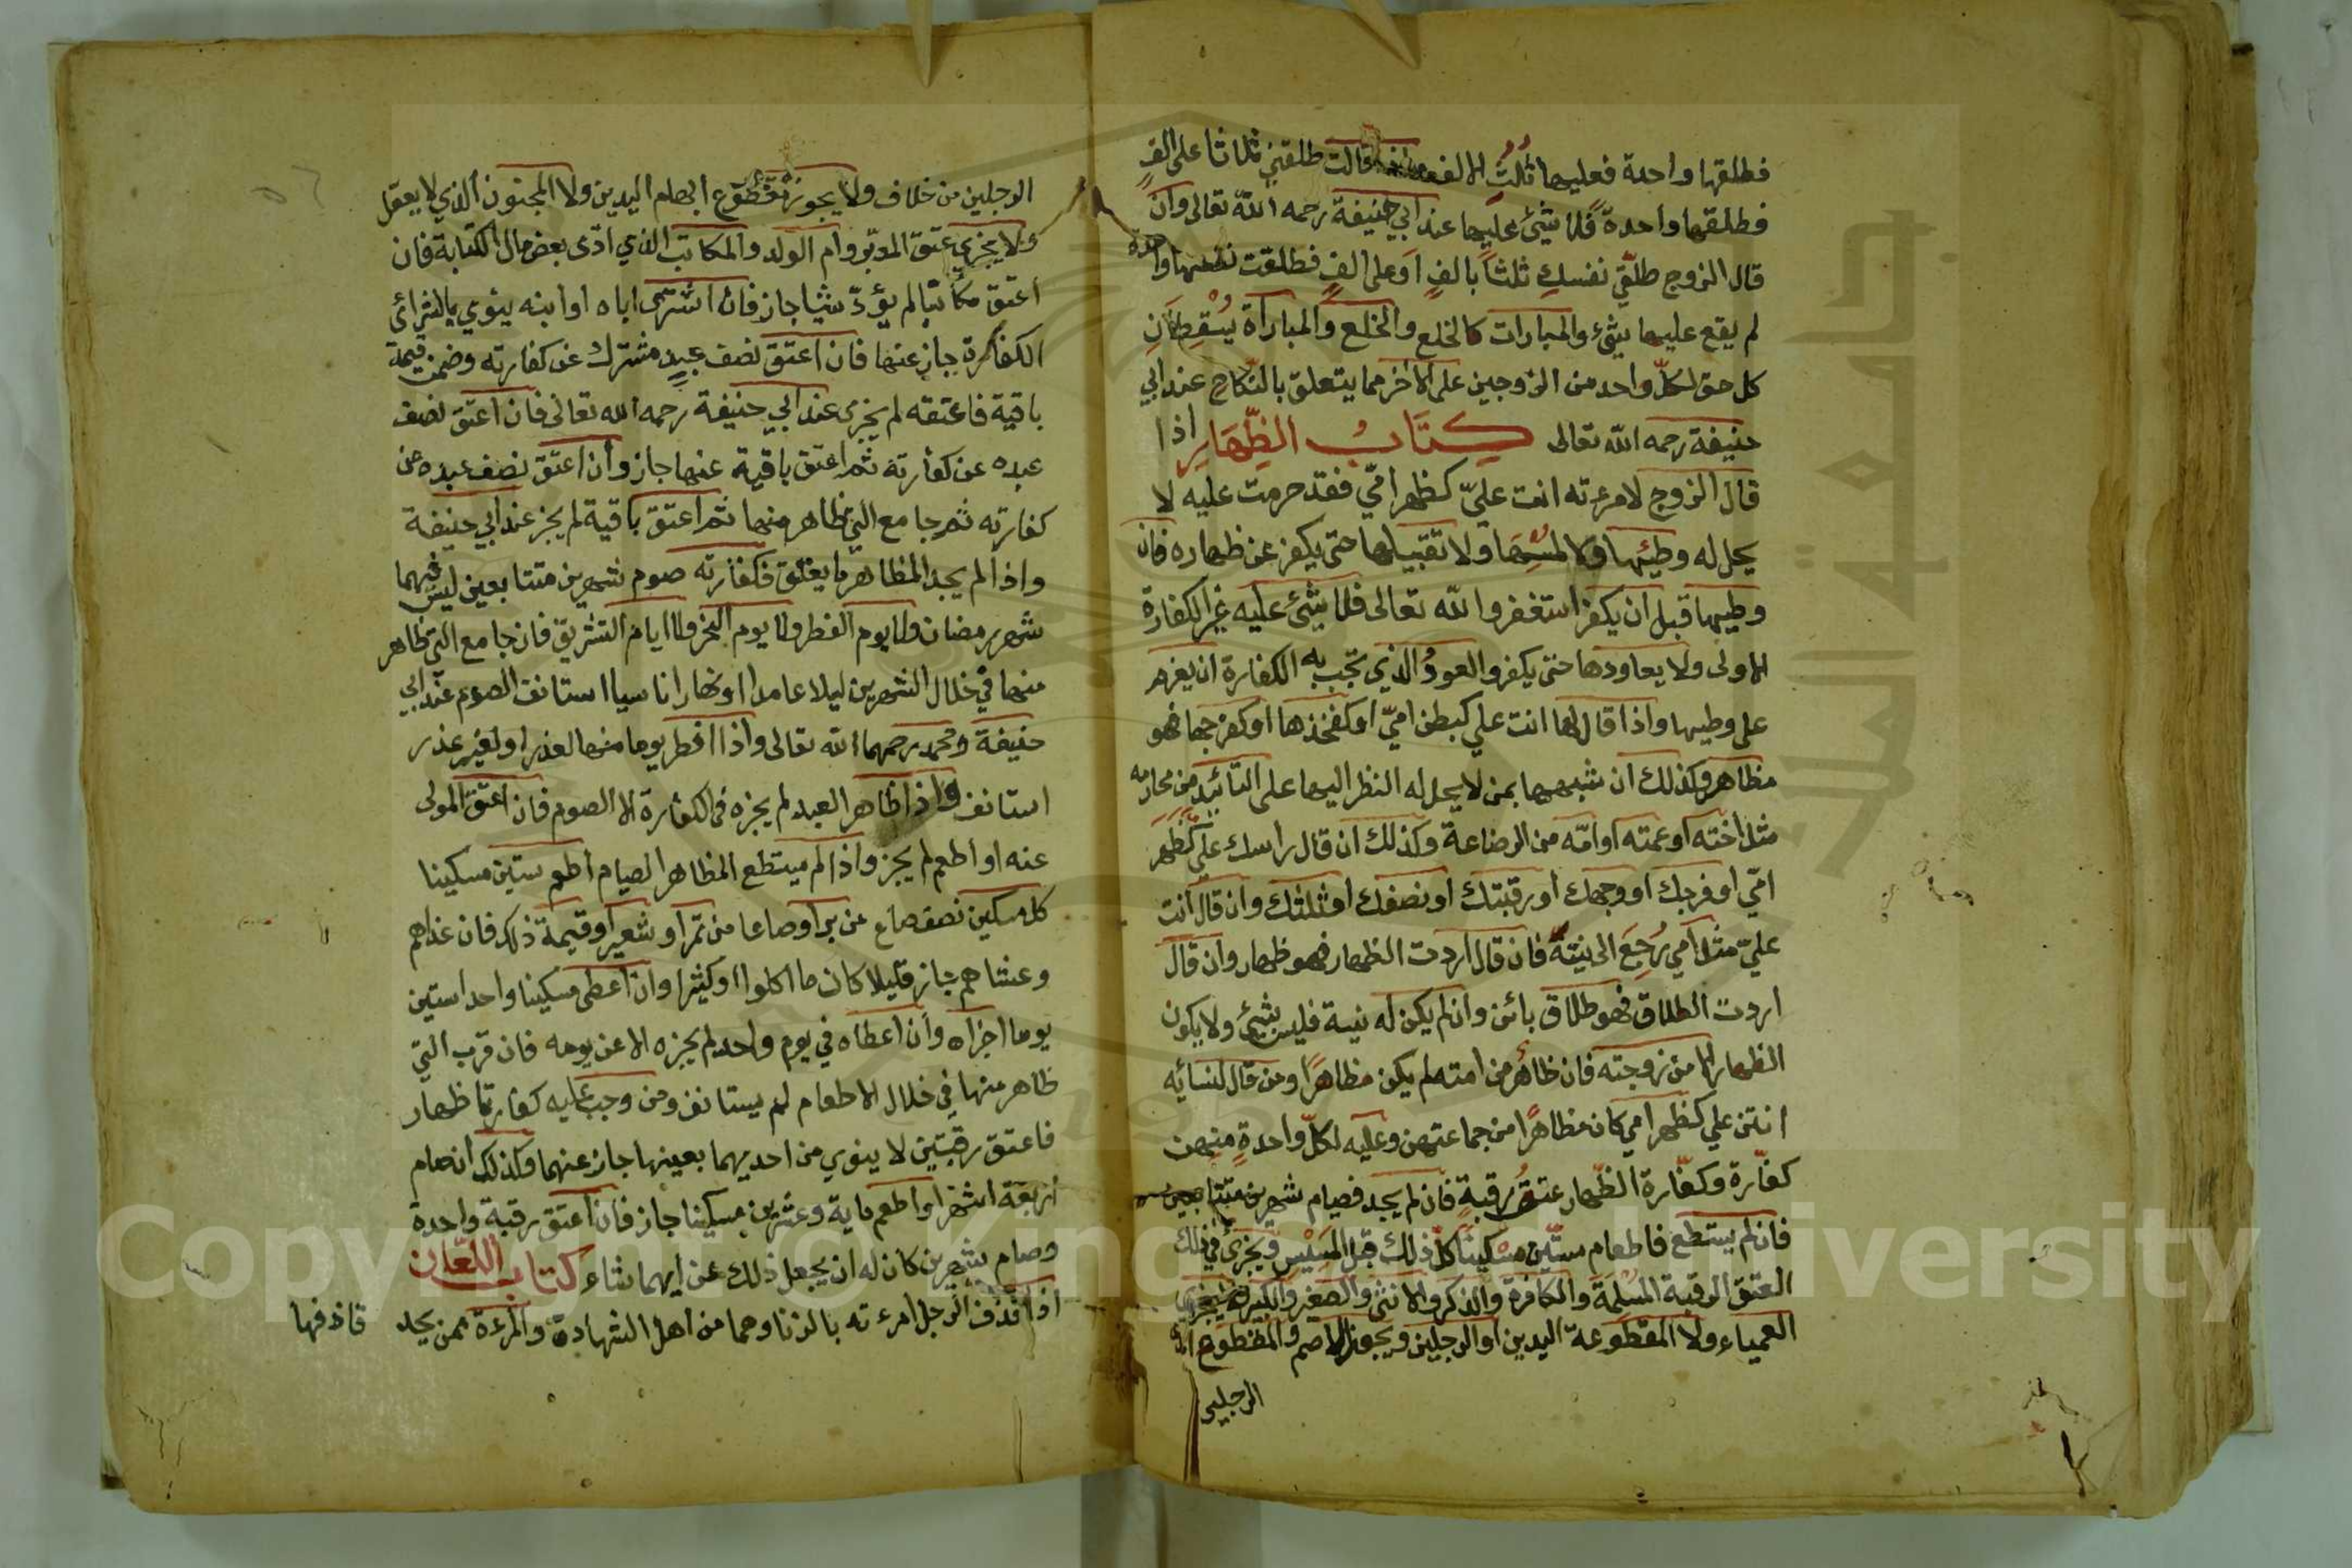 فطلقها واحدة فعليها ثُلُثُ الالف قالت طلقني ثلاثا على الفٍ
فطلقها واحدةً فلا شيئ عليها عند ابي حنيفة رحمه الله تعالى وان
قال الزوج طلّقي نفسكِ ثلثاً بالفٍ او على الفٍ فطلقت نفسها واحدة
لم يقع عليها شئ والمبارات كالخلع والخلع والمباراة يُسْقِطانِ
كل حق لكلّ واحد من الزوجين على الاخر مما يتعلق بالنّكاح عند ابي
حنيفة رحمه الله تعالى كِتَابُ الظِّهَارِ اذا
قال الزوج لامرءته انت عليّ كظهر امّي فقد حرمت عليه لا
يحل له وطيئها ولا لمسُها ولا تقبيلها حتى يكفر عن ظهاره فان
وطيها قبل ان يكفر استغفر الله تعالى فلا شيئ عليه غير الكفارة
الاولى ولا يعاودها حتى يكفر والعودُ الذي تجب به الكفارة ان يعزم
على وطيها واذا قال لها انت علي كبطن اميّ او كفخذها او كفرجها فهو
مظاهر وكذلك ان شبهها بمن لا يحل له النظر اليها على التأبيد من محارمه
مثل اخته او عمته او امّه من الرضاعة وكذلك ان قال راسك عليّ كظهر
امّي او فرجك او وجهك او رقبتك او نصفك او ثلثك وان قال انت
عليّ مثل امي رُجِعَ الى نيته فان قال اردت الظهار فهو ظهار وان قال
اردت الطلاق فهو طلاق بائن وان لم يكن له نية فليس بشيئ ولا يكون
الظهار الا من زوجته فان ظاهر من امته لم يكن مظاهرًا ومن قال لنسائه
انتن علي كظهر امي كان مظاهرًا من جماعتهن وعليه لكلّ واحدةٍ منهن
كفّارة وكفّارة الظّهار عتقُ رقبةٍ فان لم يجد فصيام شهرين متتابعين
فان لم يستطع فاطعام ستّين مسْكينًا كلّ ذلك قبل المسيْسِ ويجزئ في ذلك
العتق الرقبة المُسْلِمَةَ والكافرة والذكر والانثى والصغير والكبير ولا يجزي
العمياء ولا المقطوعة اليدين او الرجلين ويجوز الاصم والمقطوع احدى
الرجلين
الرجلين من خلاف ولا يجوز مقطوع ابهام اليدين ولا المجنون الذي لا يعقل
ولا يجزي عتق المدبّر وام الولد والمكاتب الذي ادّى بعض مال الكتابة فان
اعتق مكاتبا لم يؤدّ شيئا جاز فان اشترى اباه او ابنه ينوي بالشرائ
الكفارة جاز عنها فان اعتق نصف عبدٍ مشترك عن كفارته وضمن قيمة
باقية فاعتقه لم يجزى عند ابي حنيفة رحمه الله تعالى فان اعتق نصف
عبده عن كفارته ثم اعتق باقية عنها جاز وان اعتق نصف عبده عن
كفارته ثم جامع التي ظاهر منها ثم اعتق باقية لم يجز عند ابي حنيفة
واذا لم يجد المظاهر ما يعتق فكفارته صوم شهرين متتابعين ليس فيهما
شهر رمضان ولا يوم الفطر ولا يوم النحر ولا ايام التشريق فان جامع التي ظاهر
منها في خلال الشهرين ليلا عامدا او نهارا ناسيا استانف الصوم عند ابي
حنيفة ومحمد رحمهما الله تعالى واذا افطر يوما منها لعذر او لغير عذر
استانف واذا ظاهر العبد لم يجزه في الكفارة الا الصوم فان اعتق المولى
عنه او اطعم لم يجز واذا لم يستطع المظاهر الصيام اطعم ستين مسكينا
كل مسكين نصف صاع من بر او صاعا من تمر او شعير او قيمة ذلك فان غداهم
وعشاهم جاز قليلا كان ما اكلوا او كثيرا وان اعطى مسكينا واحدا ستين
يوما اجزاه وان اعطاه في يوم واحد لم يجزه الا عن يومه فان قرب التي
ظاهر منها في خلال الاطعام لم يستانف ومن وجب عليه كفارتا ظهار
فاعتق رقبتين لا ينوي من احديهما بعينها جاز عنهما وكذلك ان صام
اربعة اشهر او اطعم ماية وعشرين مسكينا جاز فان اعتق رقبة واحدة
وصام شهرين كان له ان يجعل ذلك عن ايهما شاء كتاب اللّعان
اذا قذف الرجل امرءته بالزنا وهما من اهل الشهادة والمرءة ممن يحد
قاذفها
Copyright © King Saud University